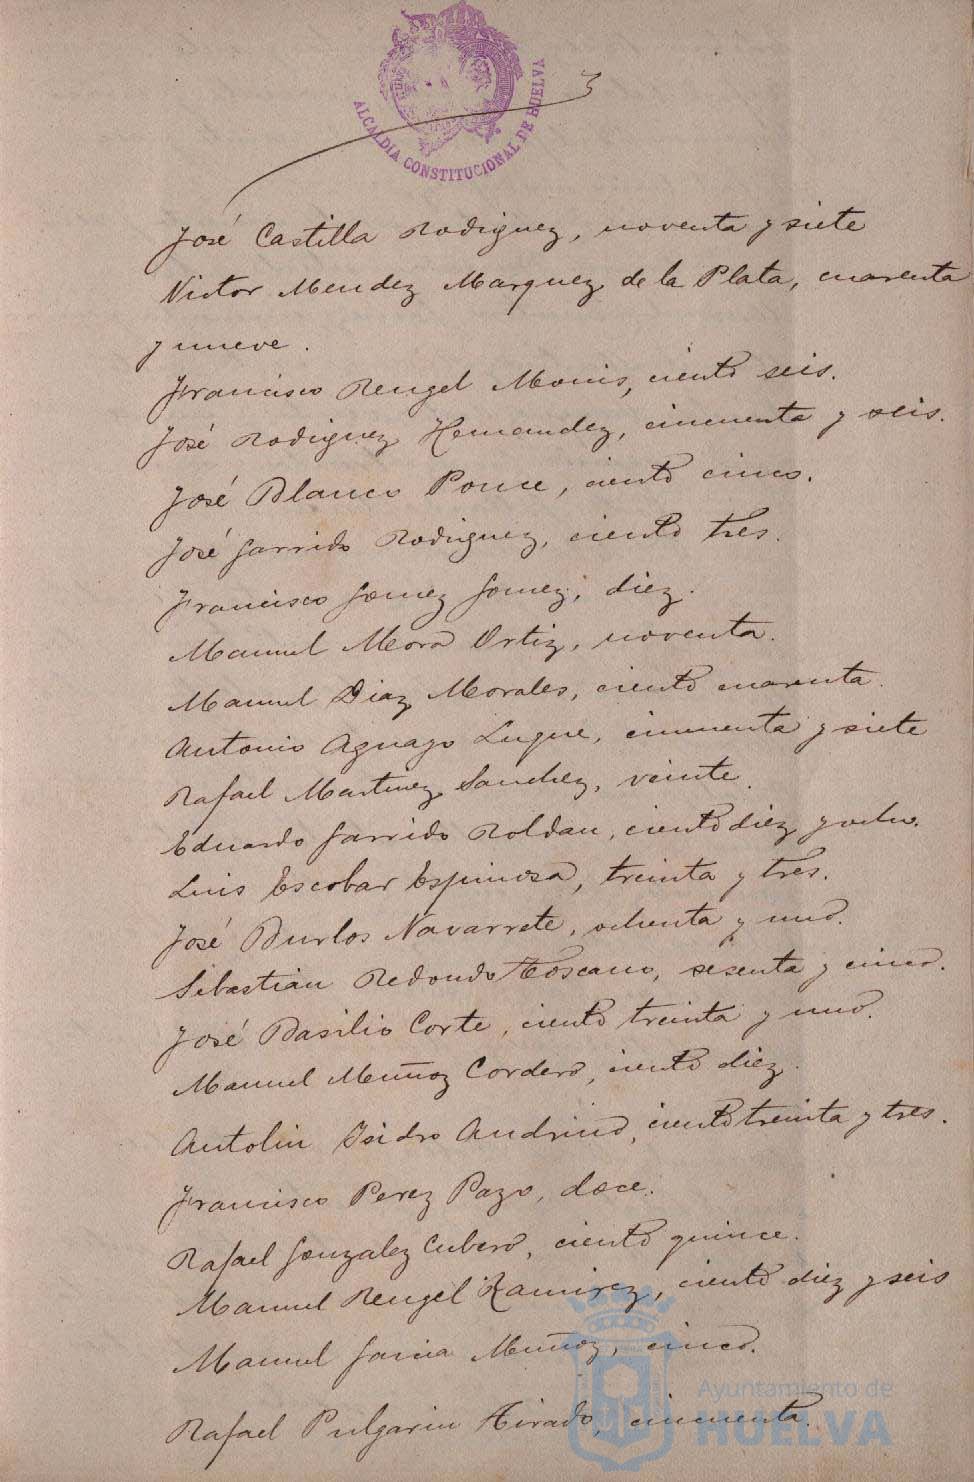 ALCALDIA CONSTITUCIONAL DE HUELVA
José Castilla Rodiguez, noventa y siete
Victor Mendez Marquez de la Plata, cuarenta
y nueve.
Francisco Rengel Monis, ciento seis.
José Rodiguez Hernandez, cincuenta y seis.
José Blanco Ponce, ciento cinco.
José Garrido Rodiguez, ciento tres.
Francisco Gomez Gomez, diez.
Manuel Mora Ortiz, noventa.
Manuel Diaz Morales, ciento cuarenta.
Antonio Aguayo Luque, cincuenta y siete
Rafael Martinez Sanchez, veinte.
Eduardo Garrido Roldan, ciento diez y ocho.
Luis Escobar Espinosa, treinta y tres.
José Burlos Navarrete, ochenta y uno.
Sebastián Redondo Toscano, sesenta y cinco.
José Basilio Corte, ciento treinta y uno.
Manuel Muñoz Cordero, ciento diez.
Antolin Isidro Andrino, ciento treinta y tres.
Francisco Perez Pazo, doce.
Rafael Gonzalez Cubero, ciento quince.
Manuel Rengel Ramirez, ciento diez y seis
Manuel Garcia Muñoz, cinco.
Rafael Pulgarin Tirado, cincuenta.
Ayuntamiento de
HUELVA